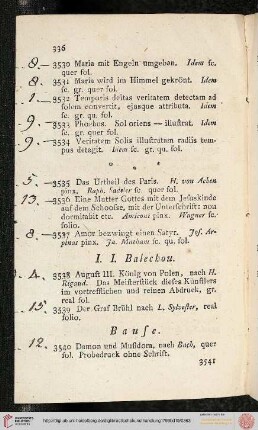 336
8.— 3530 Maria mit Engeln umgeben. Idem sc.
quer fol.
8.— 3531 Maria wird im Himmel gekrönt. Idem
sc. gr. quer fol.
1.— 3532 Temporis deitas veritatem detectam ad
solem convertit, ejusque attributa. Idem
sc. gr. qu. fol.
9.— 3533 Phoebus. Sol oriens — illustrat. Idem
sc. gr. qu. fol.
9.— 3534 Veritatem Solis illustratam radiis tem-
pus detegit. Idem sc. gr. qu. fol.
5.— 3535 Das Urtheil des Paris. H. von Achen
pinx. Raph. Sadeler sc. quer fol.
13.— 3536 Eine Mutter Gottes mit dem Jesuskinde
auf dem Schoosse, mit der Unterschrift: non
dormitabit etc. pinx. Wagner sc.
folio.
8.— 3537 Amor bezwingt einen Satyr. Jos. Ar-
pinas pinx. Ja. Matham sc. qu. fol.
I. I. Balechou.
4.— 3538 August III. König von Polen, nach H.
Rigaud. Das Meisterstück dieses Künstlers
im vortrefflichen und reinen Abdruck, gr.
real fol.
15. 3539 Der Graf Brühl nach L. Sylvestre, real
folio.
Bause.
12.— 3540 Damon und Musidora, nach Bach, quer
fol. Probedruck ohne Schrift.
3541